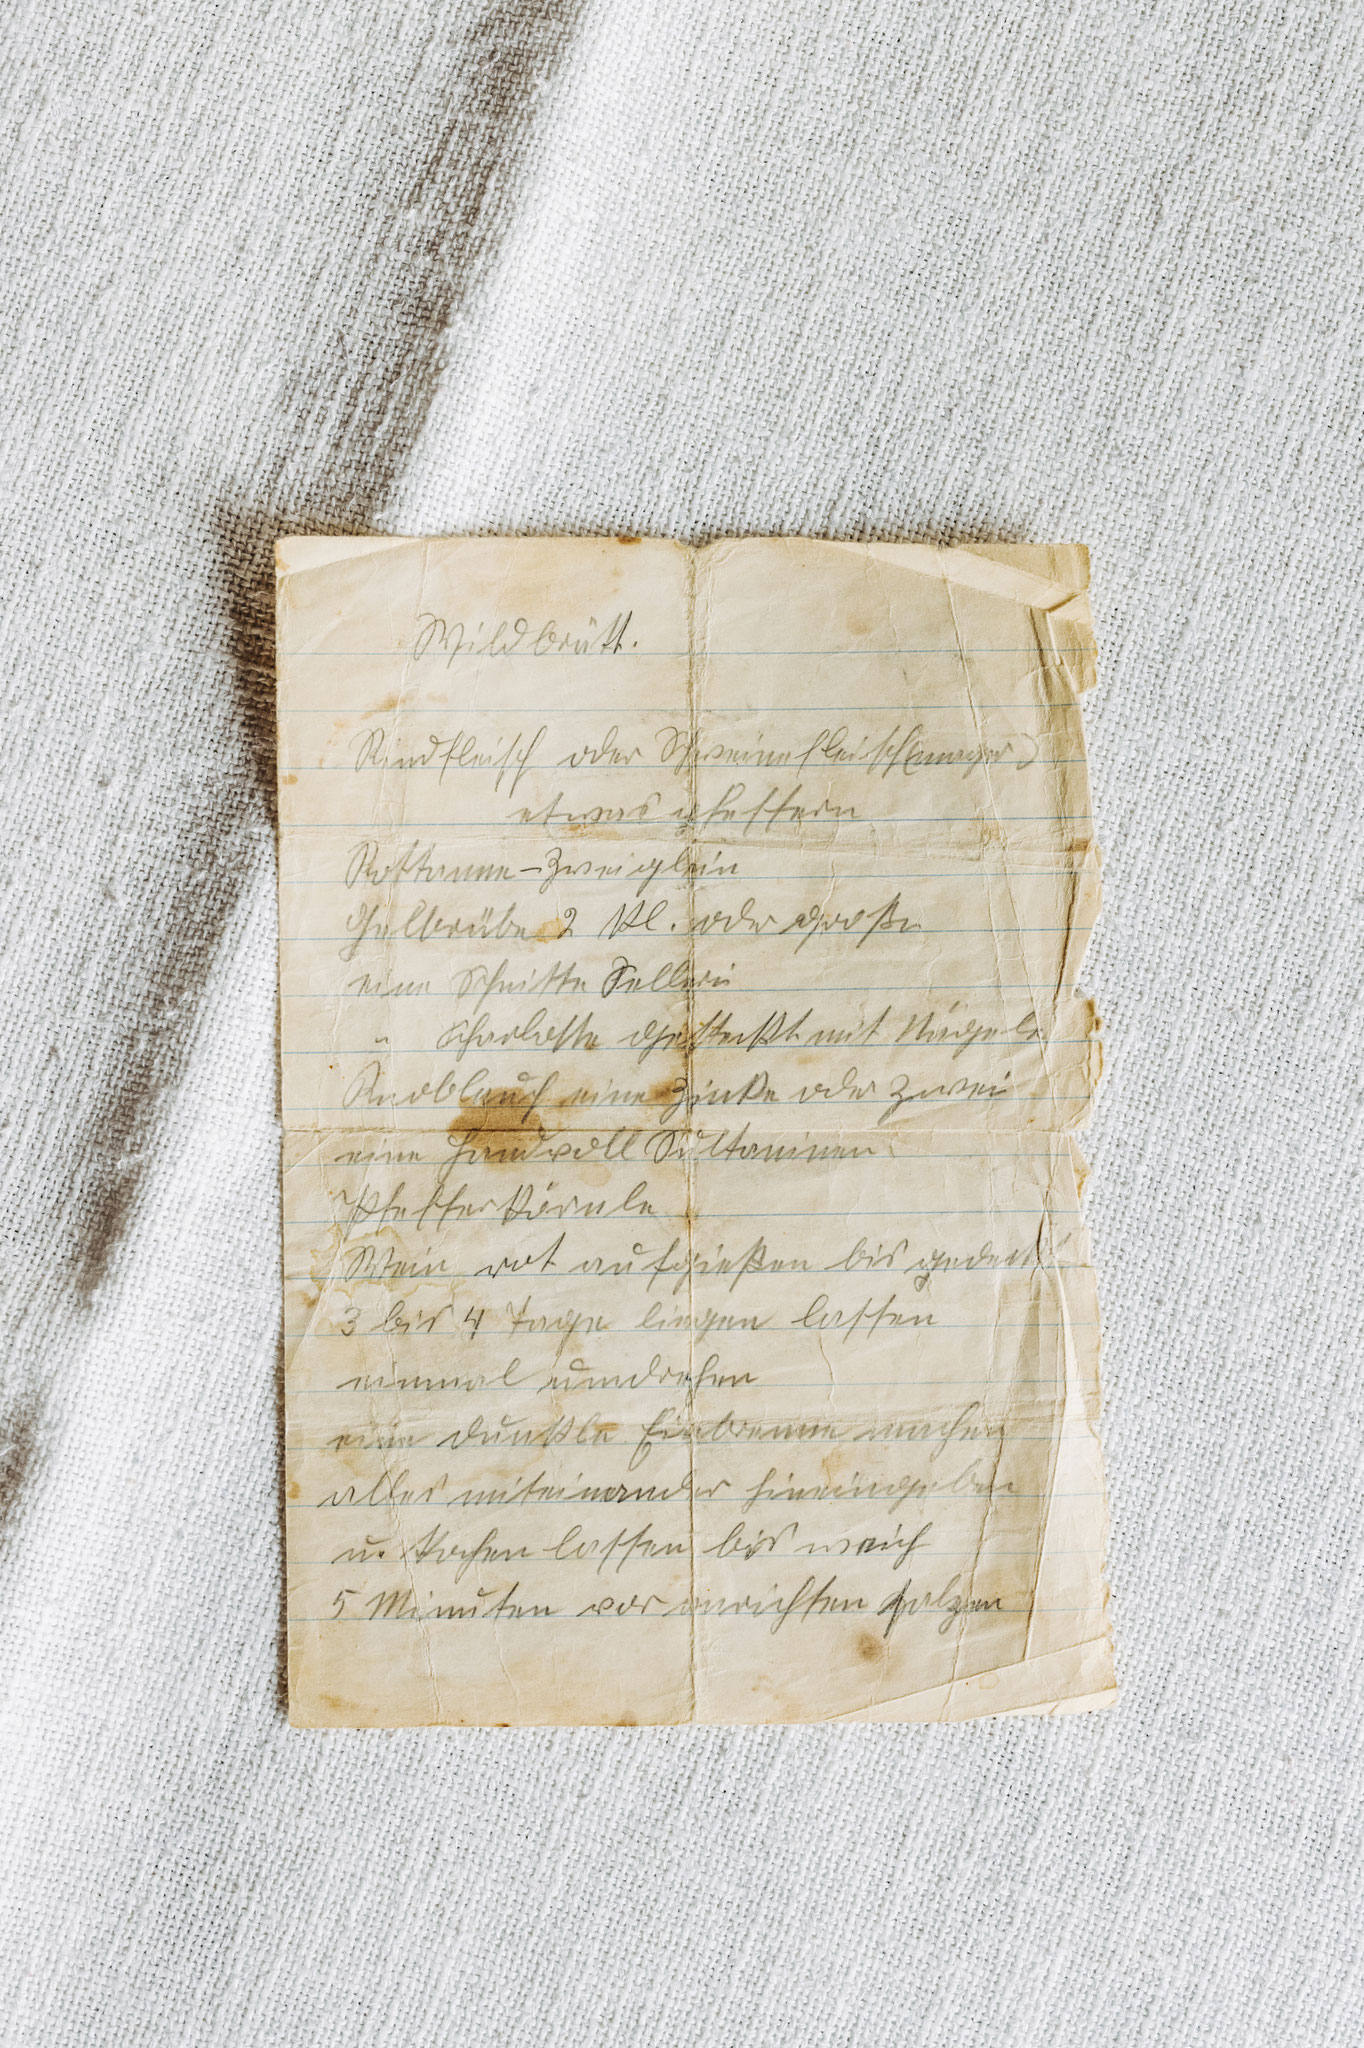 Wildbrätt.
Rindfleisch oder Schweinefleisch (mager)
etwas pfeffern
Rottanne-Zweiglein
Gelbrübe 2 Kl. oder große
eine Schnitte Sellerie
" Scharlotte gesteckt mit Nägele
Knoblauch eine Zinke oder zwei
eine Handvoll Sultaninen
Pfefferkörnle
Wein rot aufgießen bis gedeckt
3 bis 4 Tage liegen lassen
einmal umdrehen
eine dunkle Einbrenne machen
alles miteinander hineingeben
u. kochen lassen bis weich
5 Minuten vor anrichten salzen